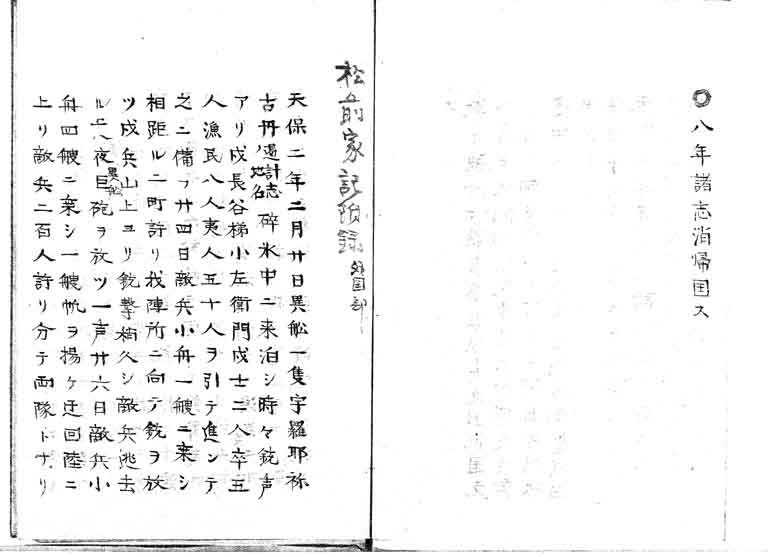 〇八年諸志消帰国ス
松前家記附録 外国部
天保二年二月廿日異舩一隻宇羅耶祢
古丹(ノ地名 邊計志)碎氷中ニ来泊シ時々銃声
アリ戍長谷梯小左衛門戍士二人卒五
人漁民八人夷人五十人ヲ引テ進ンテ
之ニ備フ廿四日敵兵小舟一艘ニ乗シ
相距ル二町許リ我陣所ニ向テ銃ヲ放
ツ戍兵山上ヨリ銃撃稍久シ敵兵逃去
ル夜異舩巨砲ヲ放ツ一声廿六日敵兵小
舟四艘ニ乗シ一艘帆ヲ揚ケ迂回陸ニ
上リ敵兵二百人許リ分テ両隊トナリ